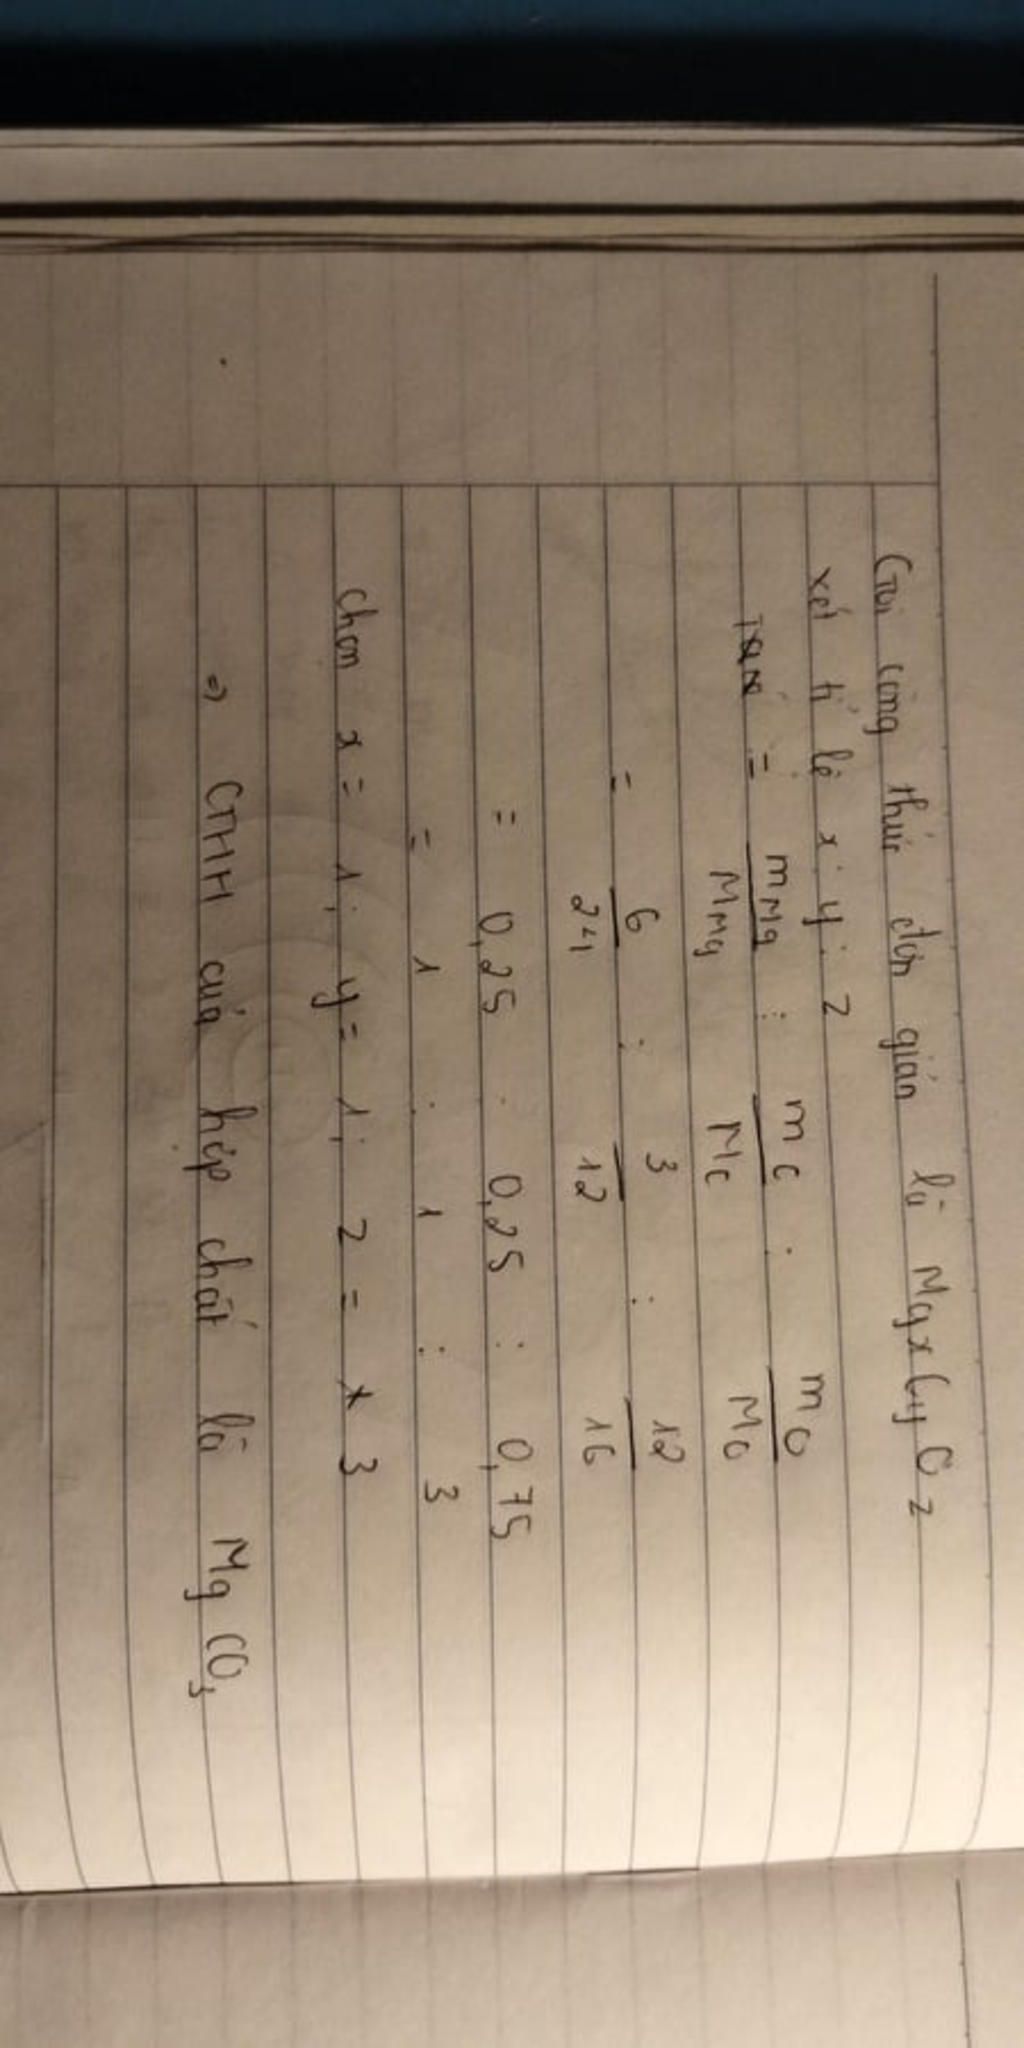 Gọi công thức đơn giản là MgxCyOz
xét tỉ lệ x : y : z
= mMg/MMg : mC/MC : mO/MO
= 6/24 : 3/12 : 12/16
= 0,25 : 0,25 : 0,75
= 1 : 1 : 3
chọn x = 1; y = 1; z = 3
=> CTHH của hợp chất là MgCO3